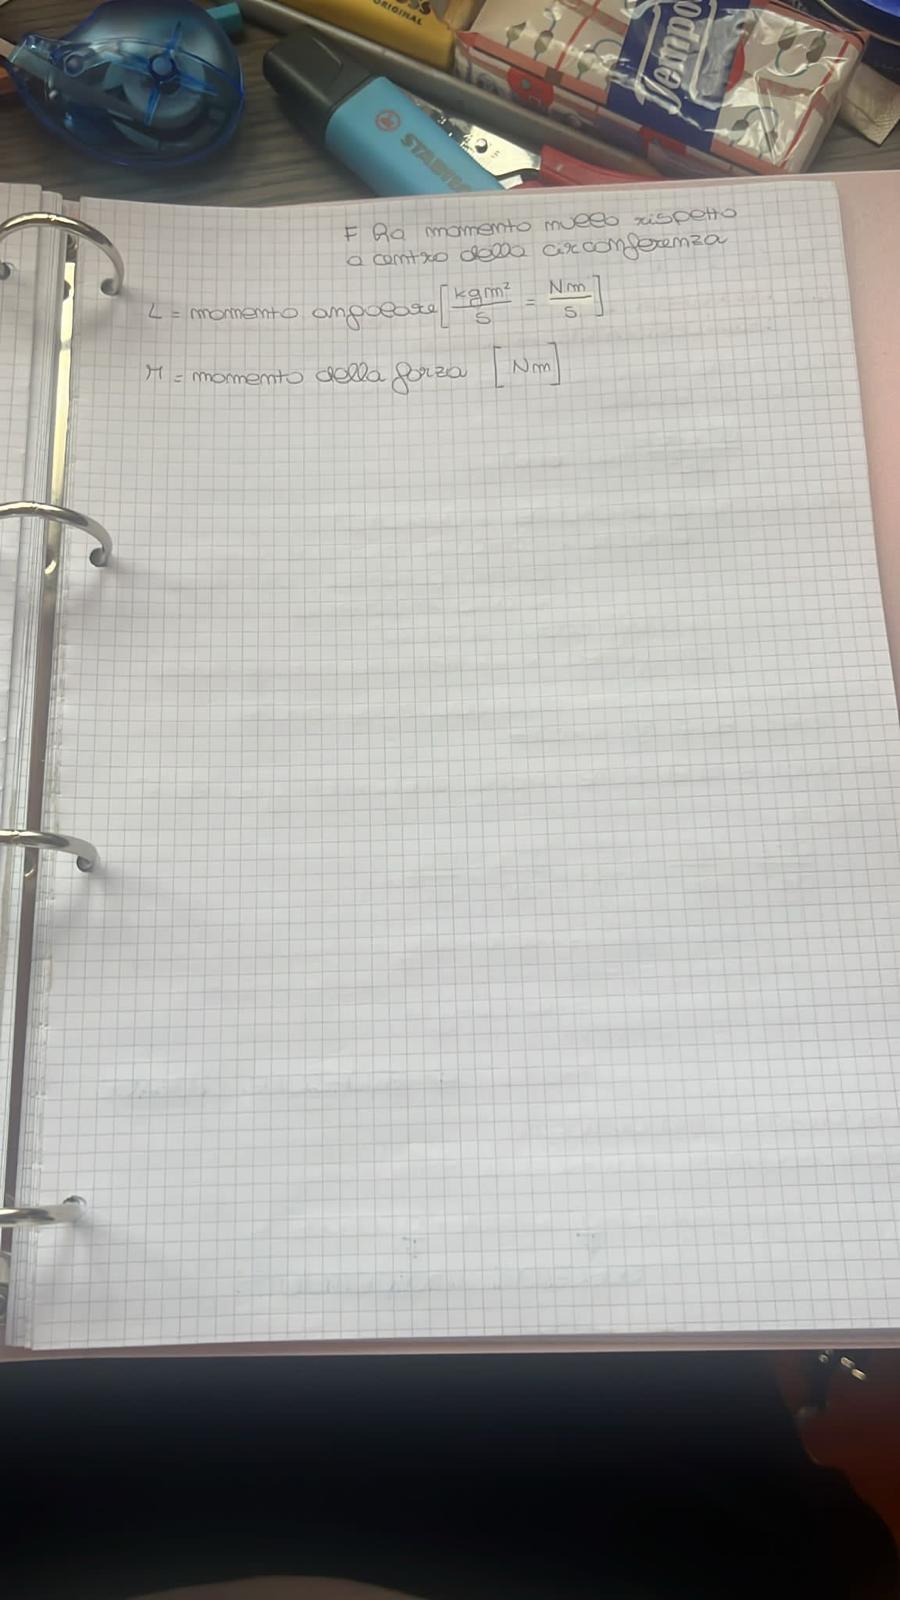 ORIGINAL
STABILO
Tempo
F ha momento nullo rispetto
a centro della circonferenza
L = momento angolare [kgm²/s = Nm/s]
M = momento della forza [Nm]